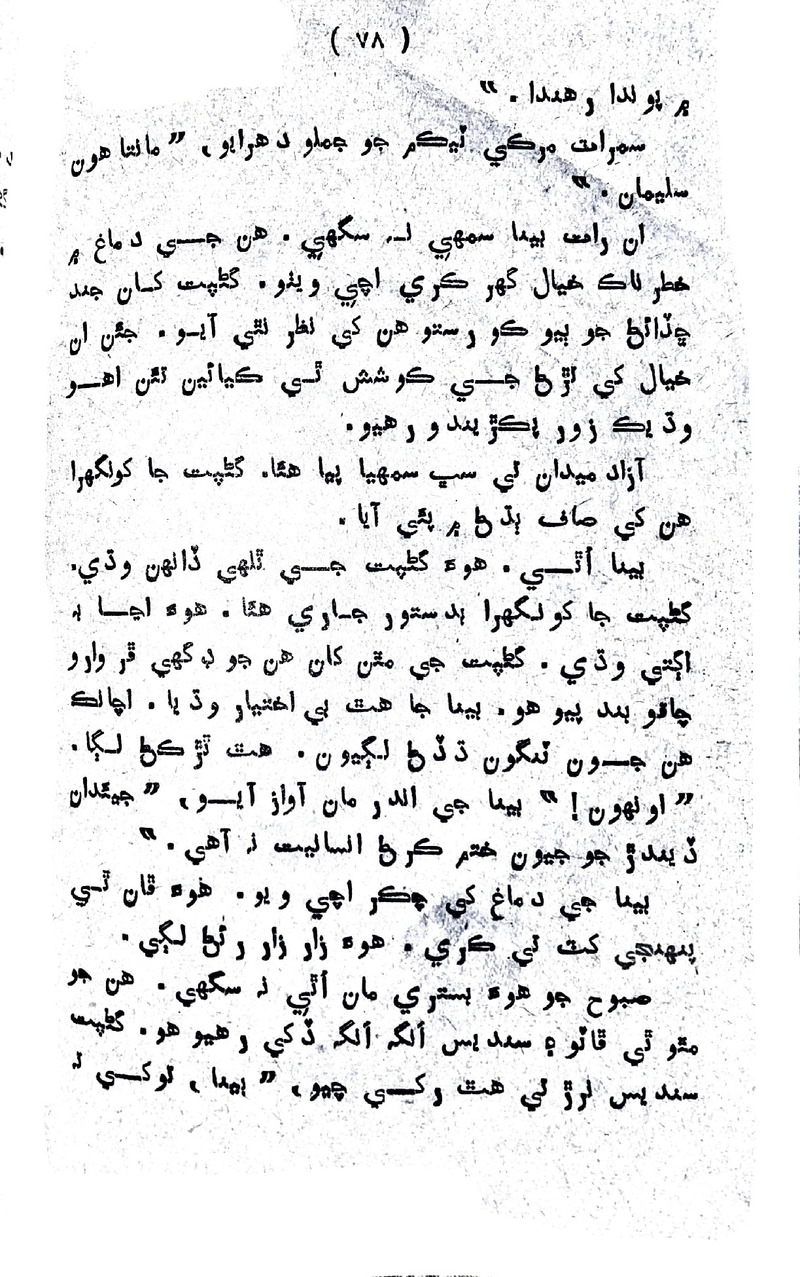 ( ٧٨ )
۾ پوندا رهندا . “
سمرات مرڪي ٽيڪم جو جملو دهرايو، ” مانتا هون
سليمان . “
ان رات بينا سمهي نہ سگهي . هن جي دماغ ۾
خطرناڪ خيال گهر ڪري اچي ويٺو. گڻپت کان جند
ڇڏائڻ جو ٻيو ڪو رستو هن کي نظر نٿي آيو . جئن ان
خيال کي لوڙڻ جي ڪوشش ٿي ڪيائين تئن اهو
وڌيڪ زور پڪڙيندو رهيو.
آزاد ميدان تي سڀ سمهيا پيا هئا. گڻپت جا کونگهرا
هن کي صاف ٻڌڻ ۾ پئي آيا .
بينا اُٿي . هوءَ گڻپت جي ٿلهي ڏانهن وڌي.
گڻپت جا کونگهرا بدستور جاري هئا . هوءَ اڃا بہ
اڳتي وڌي . گڻپت جي مٿن کان هن جو ڊگهي ڦر وارو
چاقو بند پيو هو. بينا جا هٿ بي اختيار وڌيا . اچانڪ
هن جون ٽنگون ڌڏڻ لڳيون . هٿ ٿڙڪڻ لڳا.
” اونهون! “ بينا جي اندر مان آواز آيو، ” جيئندان
ڏيندڙ جو جيون ختم ڪرڻ انسانيت نہ آهي . “
بينا جي دماغ کي چڪر اچي ويو . هوءَ ڦان ٿي
پنهنجي کٽ تي ڪري . هوءَ زار زار رئڻ لڳي .
صبوح جو هوءَ بستري مان اُٿي نہ سگهي . هن جو
مٿو ٿي ڦاٽو ۽ سنديس اُلڳہ اُلڳہ ڏکي رهيو هو . گڻپت
سنديس نرڙ تي هٿ رکي چيو، ” بينا ، توکي تہ